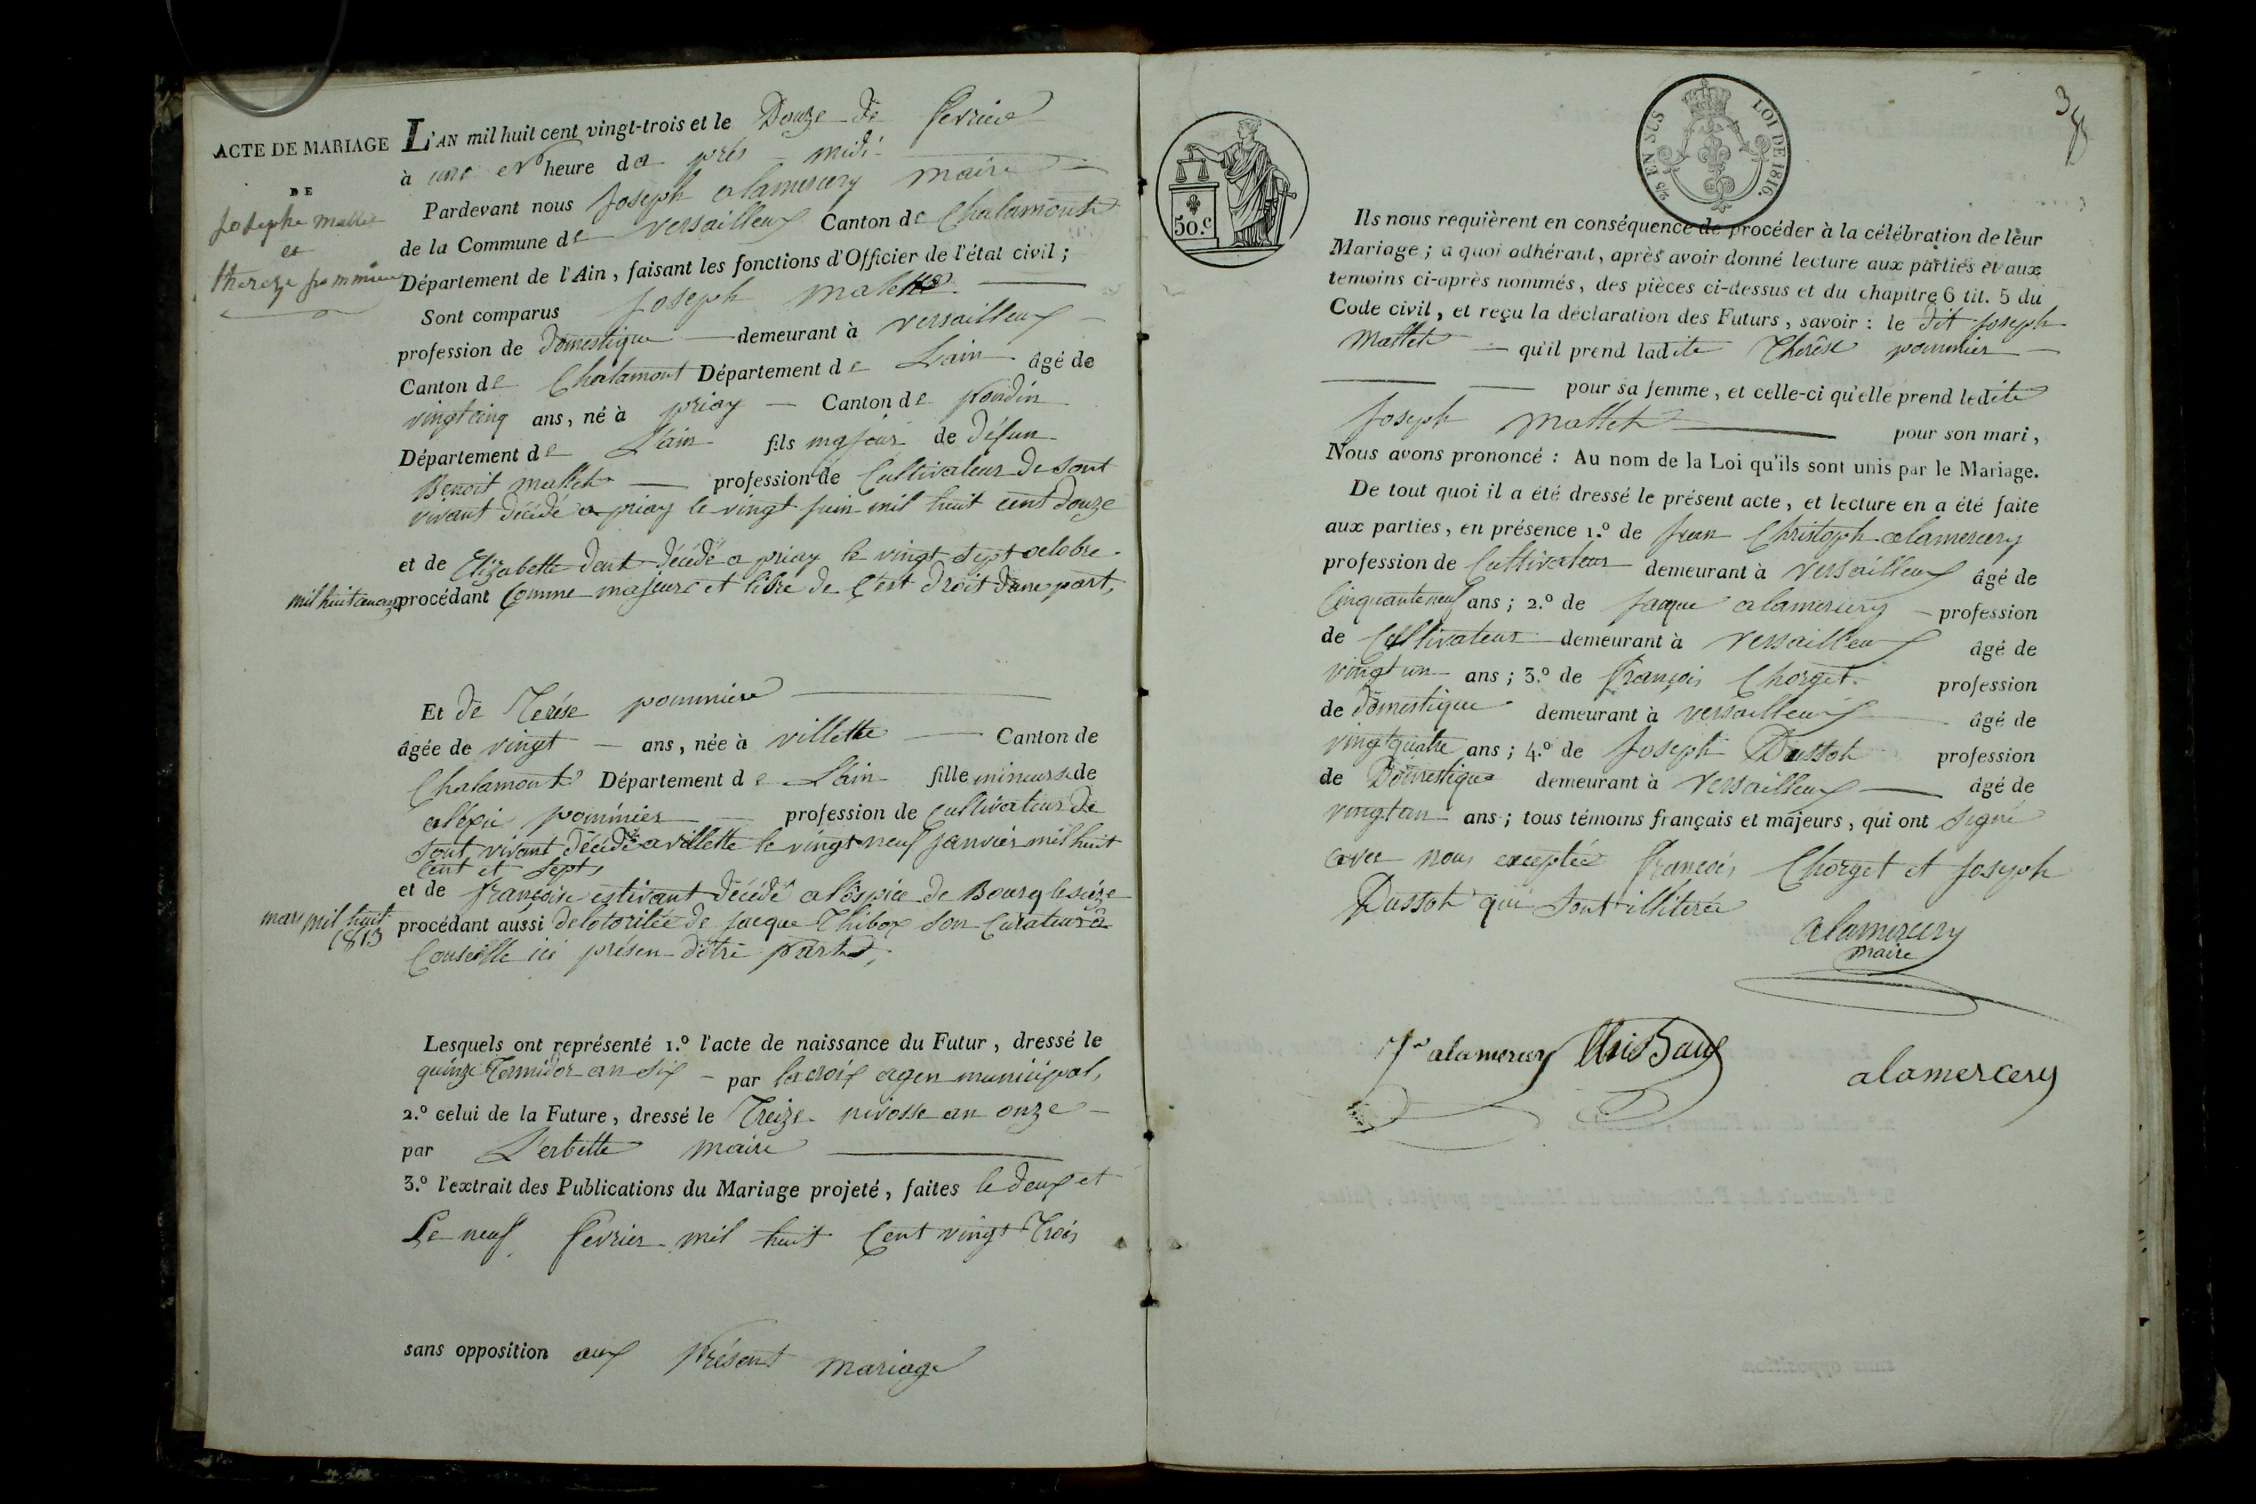 ACTE DE MARIAGE
DE
Josephe Mallet
et
thereze pommier
L'AN mil huit cent vingt-trois et le Douze de fevrier
à une heure da près midi
Pardevant nous Joseph alamercery maire
de la Commune de versailleux Canton de Chalamont
Département de l'Ain, faisant les fonctions d'Officier de l'état civil;
Sont comparus Joseph
profession de domestique demeurant à versailleux
Canton de Chalamont Département de L'ain âgé de
vingtcinq ans, né à priay Canton de
Département de L'ain fils majeur de défun
Benoit mallet profession de Cultivateur de sont
vivant décédé a priay le vingt juin mil huit cent douze
et de Elizabette dent décédé a priay le vingt sept octobre
mil huit
procédant Comme majeure et libre de c'est droit d'une part,
Et de Terése pommiere
âgée de vingt ans, née à villette Canton de
Chalamont Département de L'ain fille mineure de
aléxi pommier profession de Cultivateur de
sont vivant décédé a villette le vingt neuf janvier mil huit
cent et sept
et de françoise estivant décédé a l'ospice de Bourg le seize
mars mil huit
1813
procédant aussi de lotorité de jacque Thibox son Curateur a
Conseille ici présen d'otre part,
Lesquels ont représenté 1.º l'acte de naissance du Futur, dressé le
quinze Termidor an six par lacroix agen municipal,
2.º celui de la Future, dressé le Treize nivosse an onze
par L'erbette maire
3.º l'extrait des Publications du Mariage projeté, faites le deux et
Le neuf fevrier mil huit Cent vingt Trois
sans opposition aux présent mariage
50.c
2/5 EN SUS
LOI DE 1816.
3
Ils nous requièrent en conséquence de procéder à la célébration de leur
Mariage; a quoi adhérant, après avoir donné lecture aux parties et aux
temoins ci-après nommés, des pièces ci-dessus et du chapitre 6 tit. 5 du
Code civil, et reçu la déclaration des Futurs, savoir: le dit joseph
Mallet qu'il prend ladite Thérêse pommier
pour sa femme, et celle-ci qu'elle prend ledite
Joseph Mallet pour son mari,
Nous avons prononcé: Au nom de la Loi qu'ils sont unis par le Mariage.
De tout quoi il a été dressé le présent acte, et lecture en a été faite
aux parties, en présence 1.º de jean Christoph alamercery
profession de Cultivateur demeurant à versailleux âgé de
Cinquante neuf ans; 2.º de jacque alamercery profession
de Cultivateur demeurant à versailleux âgé de
vingt un ans; 3.º de françois Chorget profession
de domestique demeurant à versailleux âgé de
vingtquatre ans; 4.º de Joseph Dussot profession
de Domestique demeurant à versailleux âgé de
vingtun ans; tous témoins français et majeurs, qui ont signé
avec nous exceptée françois Chorget et Joseph
Dussot qui sont illiterée
alamercery
maire
alamercery
alamercery